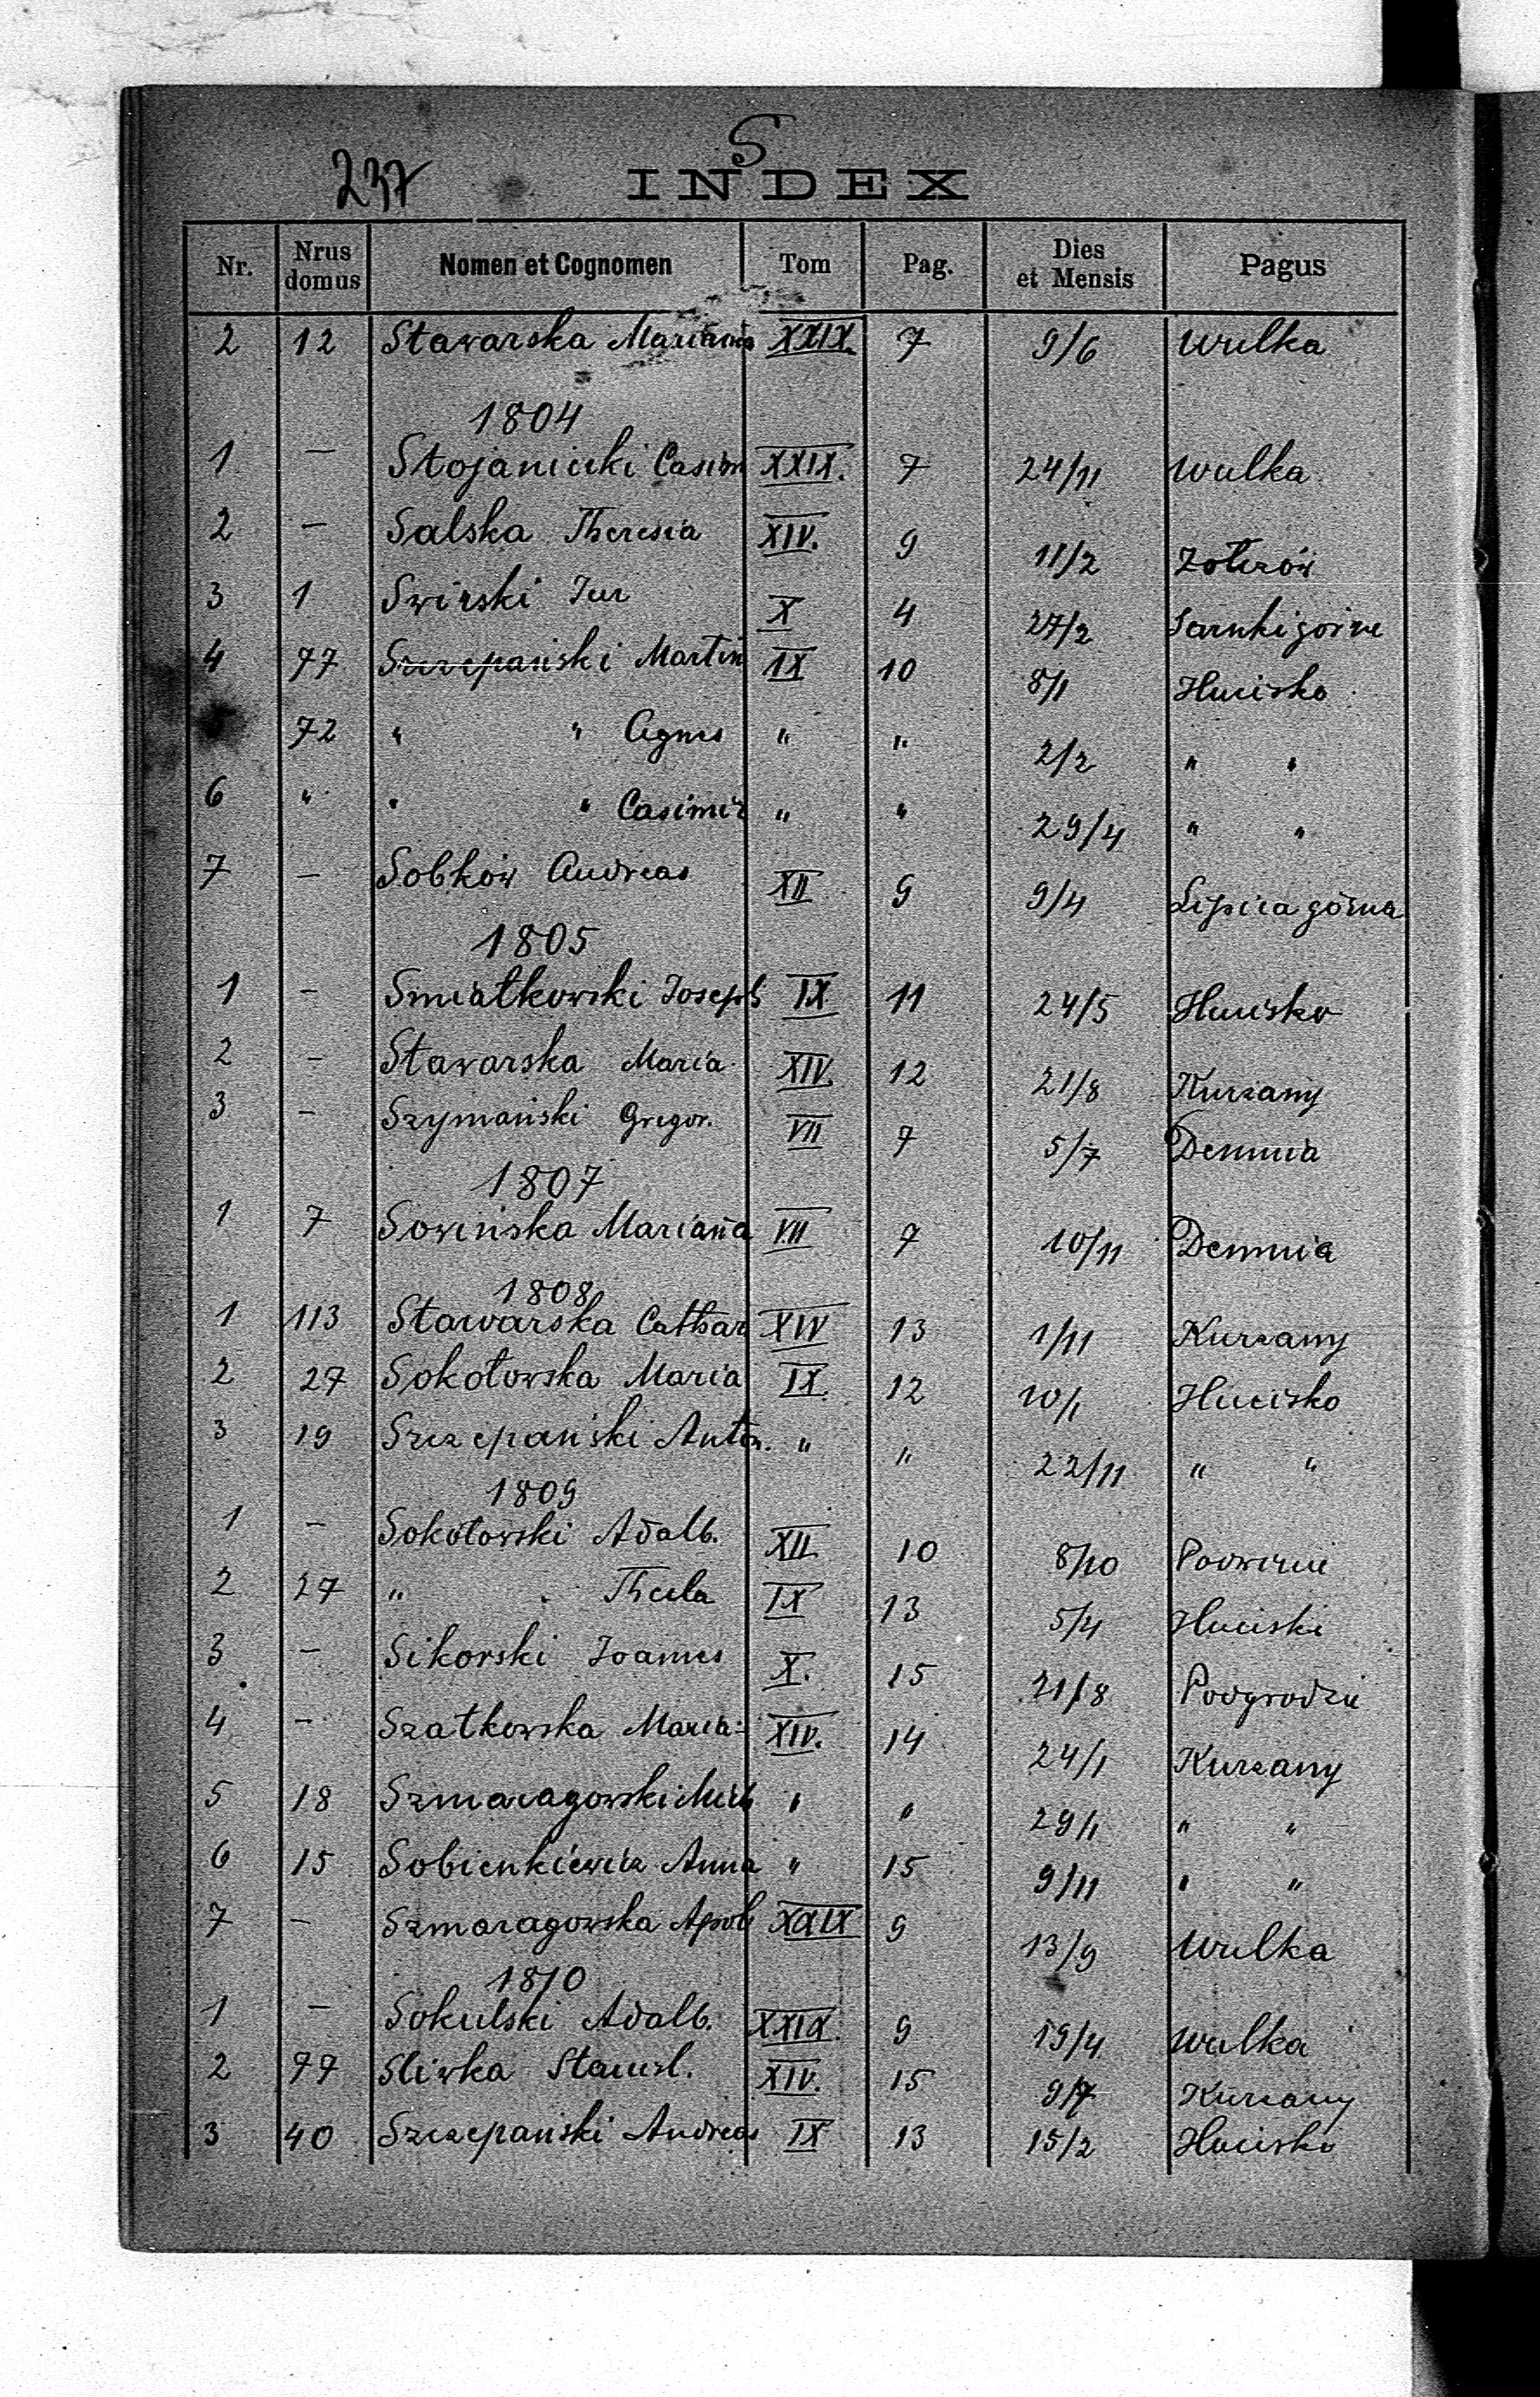 S
237
INDEX
Nr. Nrus domus Nomen et Cognomen Tom Pag. Dies et Mensis Pagus
2 12 Stawarska Marianna XXIX. 7 9/6 Wulka
1804
1 — Stojanicki Casim XXIX. 7 24/11 Wulka
2 — Salska Theresia XIV. 9 11/2
3 1 Swirski Jur X 4 27/2 Sarnki górne
4 77 Szczepański Martin IX 10 8/1 Hucisko
72 " " Agnes " " 2/2 " "
6 " " " Casimir " " 29/4 " "
7 — Sobków Andreas XII 9 9/4 Lipica górna
1805
1 — Smiałkowski Joseph IX 11 24/5 Hucisko
2 — Stawarska Maria XIV. 12 21/8 Kurzany
3 — Szymański Gregor. VII 7 5/7 Demnia
1807
1 7 Sowińska Mariana VII 7 10/11 Demnia
1808
1 113 Stawarska Cathar XIV 13 1/11 Kurzany
2 27 Sokołowska Maria IX 12 10/1 Hucisko
3 19 Szczepański Anton. " " 22/11 " "
1809
1 — Sokołowski Adalb. XII 10 8/10
2 27 " " Thecla IX 13 5/4 Huciski
3 — Sikorski Joannes X. 15 21/8 Podgrodzie
4 — Szatkowska Maria XIV. 14 24/1 Kurzany
5 18 Szmaragowski Mich " " 29/1 " "
6 15 Sobienkiewicz Anna " 15 9/11 " "
7 — Szmaragowska Apol XXIX 9 13/9 Wulka
1810
1 — Sokulski Adalb. XXIX. 9 19/4 Wulka
2 77 Sliwka Stanisl. XIV. 15 9/7 Kurzany
3 40 Szczepanski Andreas IX 13 15/2 Hucisko